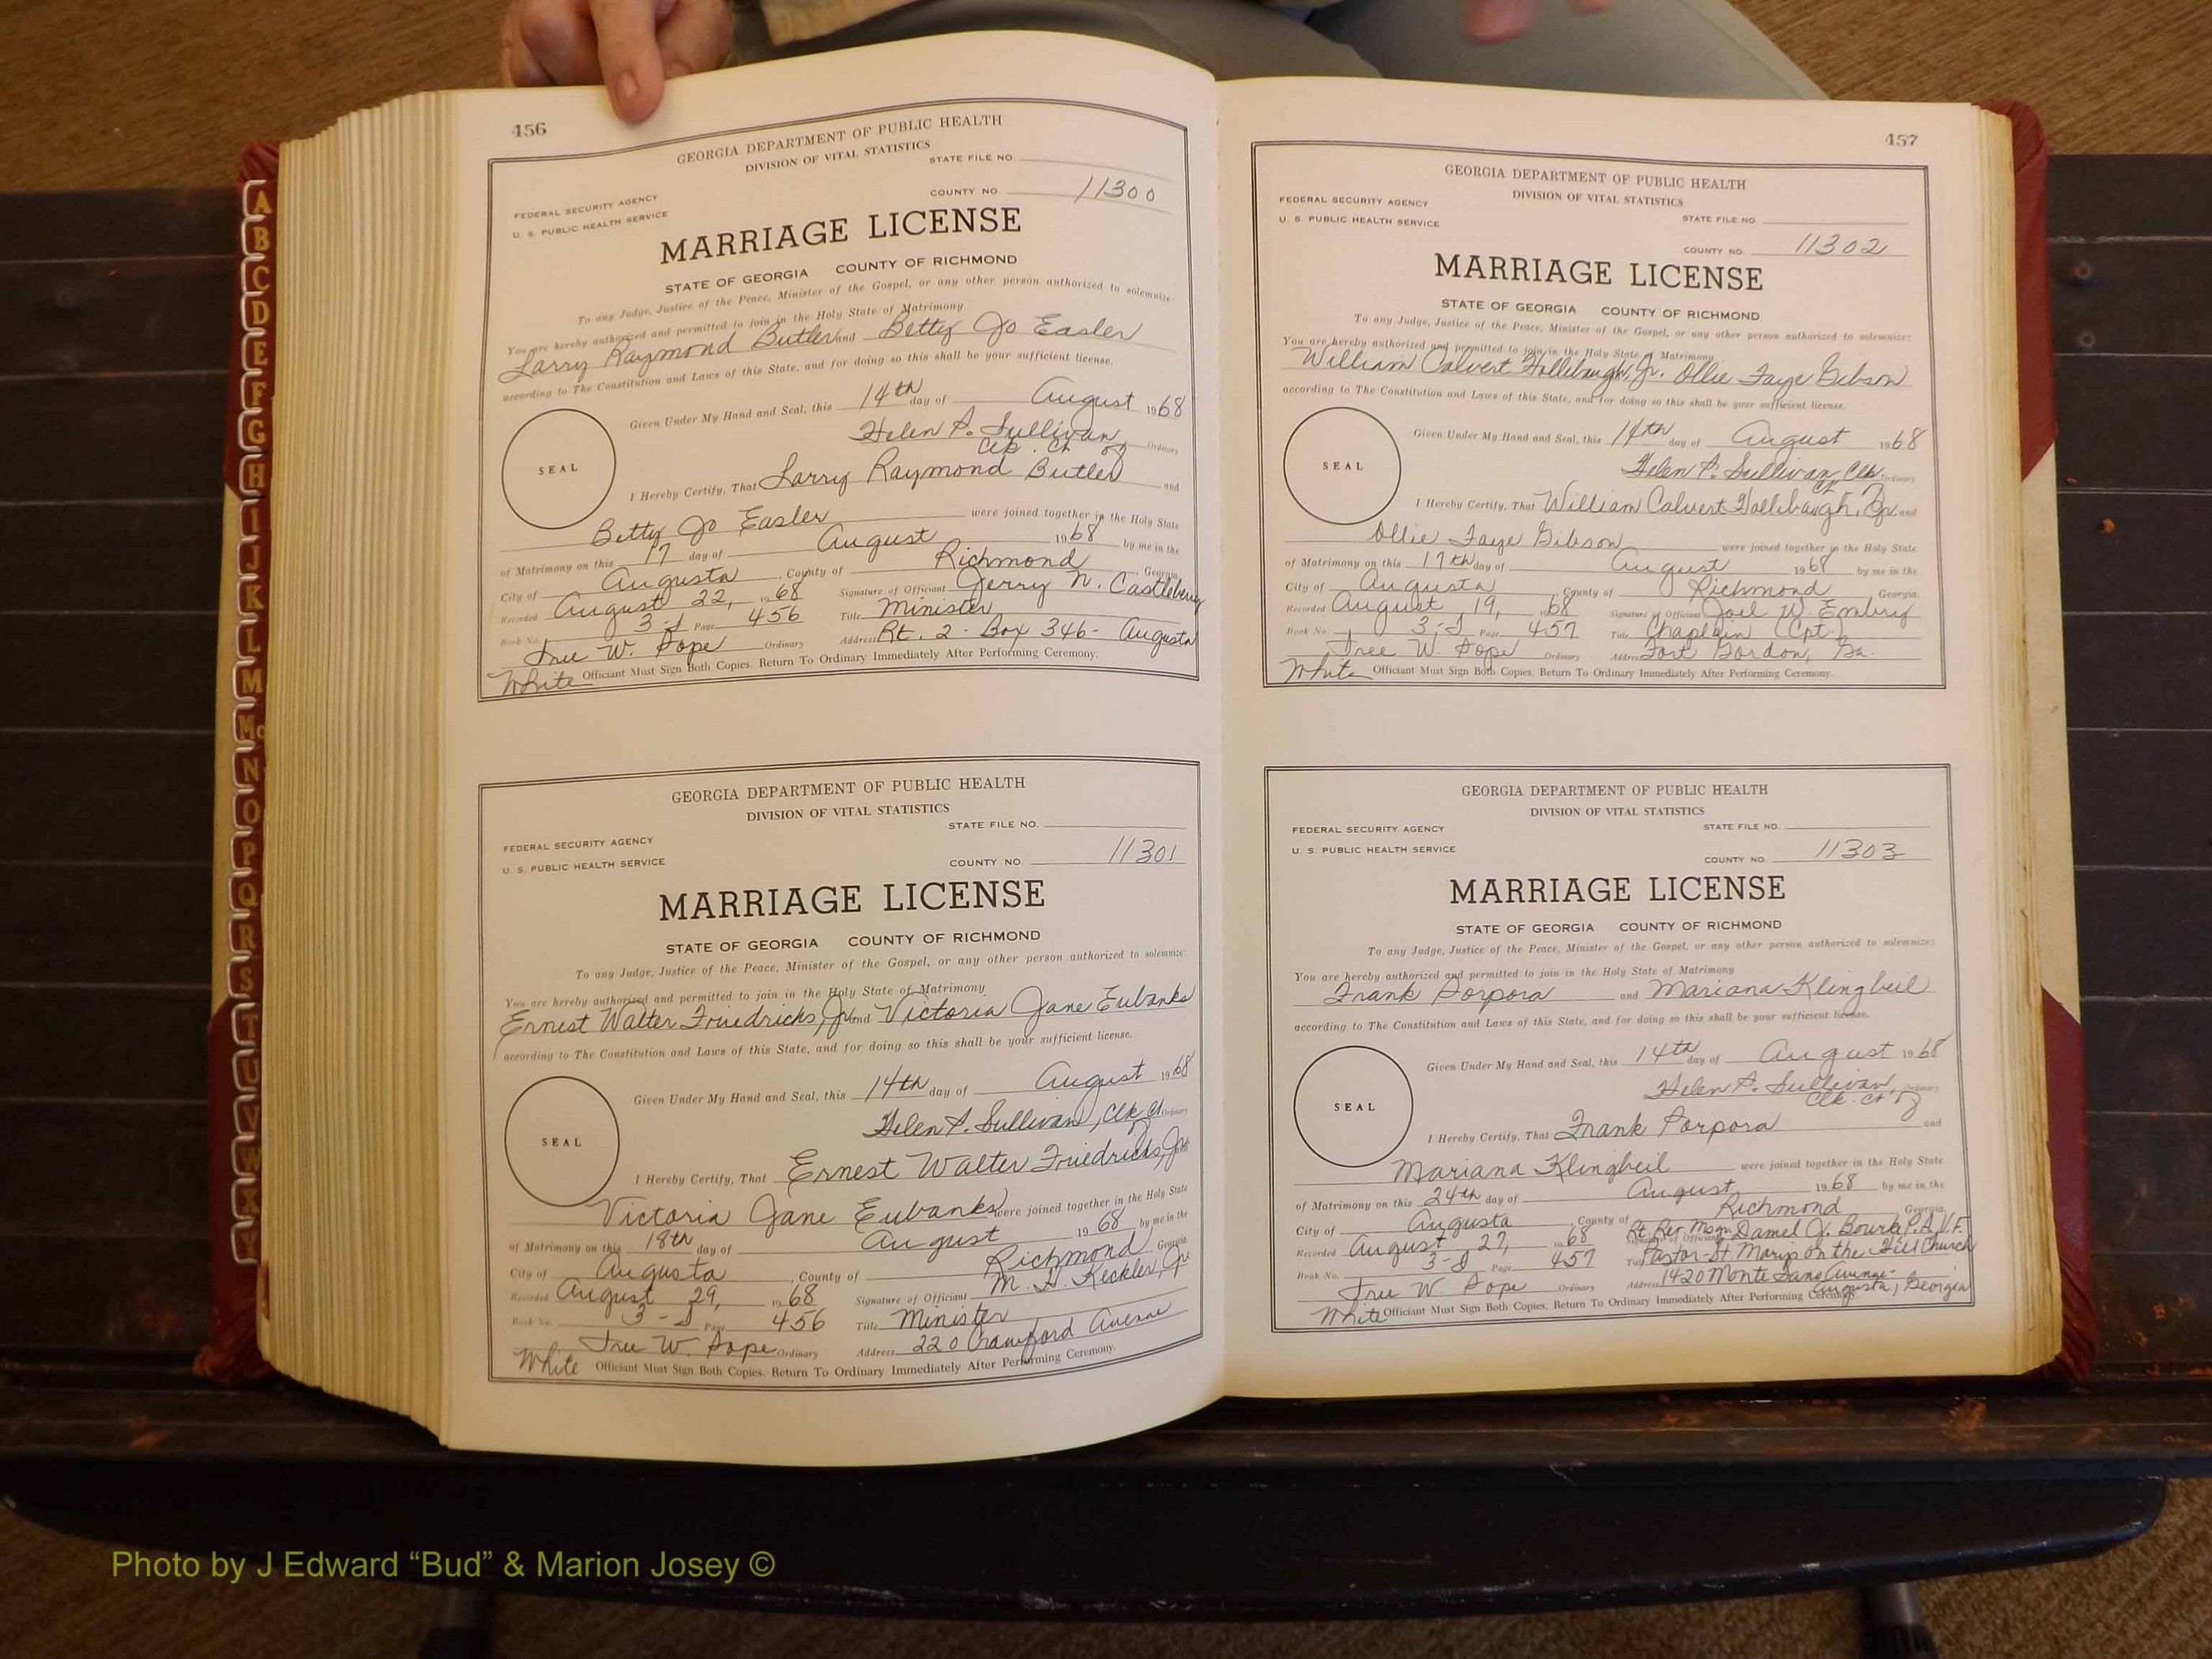 456
GEORGIA DEPARTMENT OF PUBLIC HEALTH
DIVISION OF VITAL STATISTICS
STATE FILE NO.
FEDERAL SECURITY AGENCY
COUNTY NO. 11300
U. S. PUBLIC HEALTH SERVICE
MARRIAGE LICENSE
STATE OF GEORGIA COUNTY OF RICHMOND
To any Judge, Justice of the Peace, Minister of the Gospel, or any other person authorized to solemnize:
You are hereby authorized and permitted to join in the Holy State of Matrimony
Larry Raymond Butler and Betty Jo Easler
according to The Constitution and Laws of this State, and for doing so this shall be your sufficient license.
Given Under My Hand and Seal, this 14th day of August 1968
Helen P. Sullivan Ordinary
Clk. Ct of
SEAL
I Hereby Certify, That Larry Raymond Butler and
Betty Jo Easler were joined together in the Holy State
of Matrimony on this 17 day of August 1968 by me in the
City of Augusta, County of Richmond, Georgia.
Recorded August 22, 1968 Signature of Officiant Jerry N. Castleberry
Book No. 3-J Page 456 Title Minister
True W. Pope Ordinary Address Rt. 2 - Box 346 - Augusta
White Officiant Must Sign Both Copies. Return To Ordinary Immediately After Performing Ceremony.
GEORGIA DEPARTMENT OF PUBLIC HEALTH
DIVISION OF VITAL STATISTICS
STATE FILE NO.
FEDERAL SECURITY AGENCY
U. S. PUBLIC HEALTH SERVICE
COUNTY NO. 11301
MARRIAGE LICENSE
STATE OF GEORGIA COUNTY OF RICHMOND
To any Judge, Justice of the Peace, Minister of the Gospel, or any other person authorized to solemnize:
You are hereby authorized and permitted to join in the Holy State of Matrimony
Ernest Walter Friedrichs, Jr. and Victoria Jane Eubanks
according to The Constitution and Laws of this State, and for doing so this shall be your sufficient license.
Given Under My Hand and Seal, this 14th day of August 1968
Helen P. Sullivan, Clk Ct of Ordinary
SEAL
I Hereby Certify, That Ernest Walter Friedrichs, Jr. and
Victoria Jane Eubanks were joined together in the Holy State
of Matrimony on this 18th day of August 1968 by me in the
City of Augusta, County of Richmond, Georgia.
Recorded August 29, 1968 Signature of Officiant M. H. Keckler, Jr
Book No. 3-J Page 456 Title Minister
True W. Pope Ordinary Address 220 Crawford Avenue
White Officiant Must Sign Both Copies. Return To Ordinary Immediately After Performing Ceremony.
457
GEORGIA DEPARTMENT OF PUBLIC HEALTH
DIVISION OF VITAL STATISTICS
FEDERAL SECURITY AGENCY
U. S. PUBLIC HEALTH SERVICE
STATE FILE NO.
COUNTY NO. 11302
MARRIAGE LICENSE
STATE OF GEORGIA COUNTY OF RICHMOND
To any Judge, Justice of the Peace, Minister of the Gospel, or any other person authorized to solemnize:
You are hereby authorized and permitted to join in the Holy State of Matrimony
William Calvert Hollibaugh, Jr. Ollie Faye Gibson
according to The Constitution and Laws of this State, and for doing so this shall be your sufficient license.
Given Under My Hand and Seal, this 14th day of August 1968
Helen P. Sullivan, Clk. Ct of Ordinary
SEAL
I Hereby Certify, That William Calvert Hollibaugh, Jr and
Ollie Faye Gibson were joined together in the Holy State
of Matrimony on this 17th day of August 1968 by me in the
City of Augusta, County of Richmond Georgia.
Recorded August 19, 1968 Signature of Officiant Joel W. Embry
Book No. 3-J Page 457 Title Chaplain (Cpt.
True W. Pope Ordinary Address Fort Gordon, Ga.
White Officiant Must Sign Both Copies. Return To Ordinary Immediately After Performing Ceremony.
GEORGIA DEPARTMENT OF PUBLIC HEALTH
DIVISION OF VITAL STATISTICS
FEDERAL SECURITY AGENCY
STATE FILE NO.
U. S. PUBLIC HEALTH SERVICE
COUNTY NO. 11303
MARRIAGE LICENSE
STATE OF GEORGIA COUNTY OF RICHMOND
To any Judge, Justice of the Peace, Minister of the Gospel, or any other person authorized to solemnize:
You are hereby authorized and permitted to join in the Holy State of Matrimony
Frank Porpora and Mariana Klingbeil
according to The Constitution and Laws of this State, and for doing so this shall be your sufficient license.
Given Under My Hand and Seal, this 14th day of August 1968
Helen P. Sullivan, Ordinary
Clk. Ct of
SEAL
I Hereby Certify, That Frank Porpora and
Mariana Klingbeil were joined together in the Holy State
of Matrimony on this 24th day of August 1968 by me in the
City of Augusta, County of Richmond Georgia.
Recorded August 27, 1968 Signature of Officiant Rt. Rev. Msgr. Daniel J. Bourke P.A.V.F.
Book No. 3-J Page 457 Title Pastor-St. Marys on the Hill Church
True W Pope Ordinary Address 1420 Monte Sano Avenue-
Augusta, Georgia
White Officiant Must Sign Both Copies. Return To Ordinary Immediately After Performing Ceremony.
A
B
C
D
E
F
G
H
I
J
K
L
M
Mc
N
O
P
Q
R
S
T
U
V
W
X
Y
Photo by J Edward “Bud” & Marion Josey ©